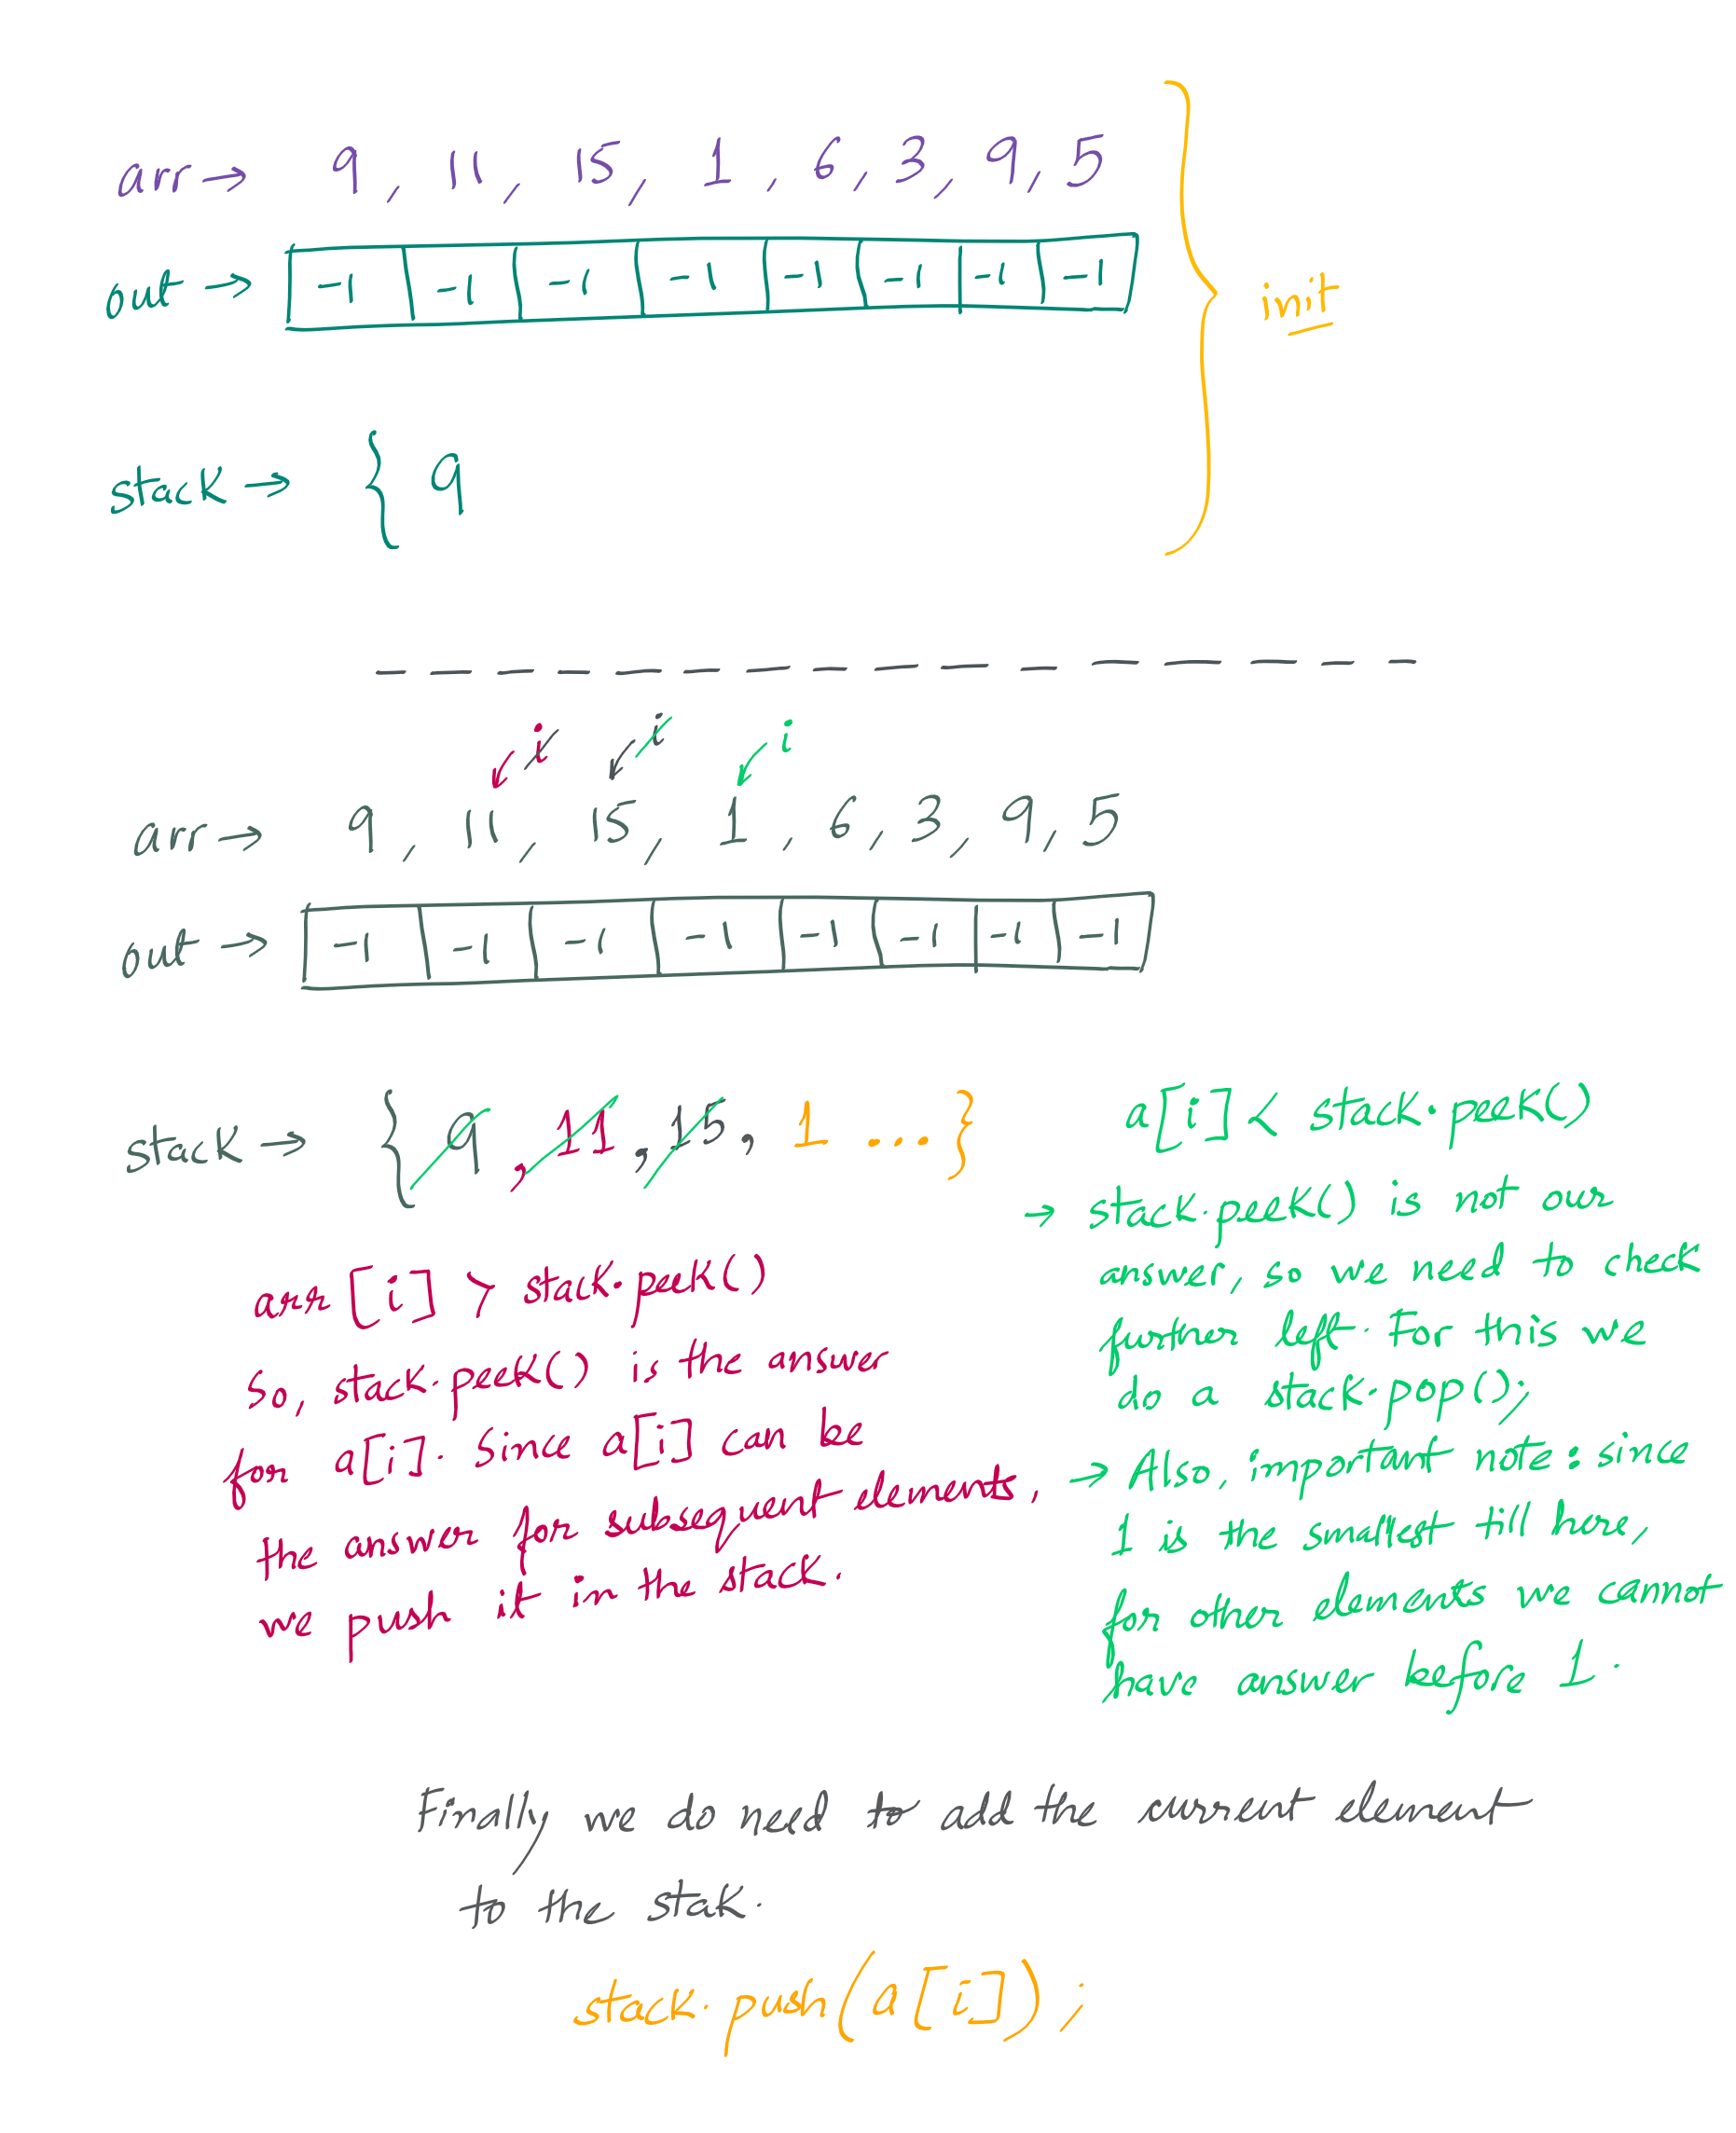 arr → 9, 11, 15, 1, 6, 3, 9, 5
out → -1 -1 -1 -1 -1 -1 -1 -1
init
stack → { 9
i i i
arr → 9, 11, 15, 1, 6, 3, 9, 5
out → -1 -1 -1 -1 -1 -1 -1 -1
stack → { 9, 11, 15, 1 ... }
arr[i] > stack.peek()
So, stack.peek() is the answer
for a[i]. Since a[i] can be
the answer for subsequent elements,
we push it in the stack.
a[i] < stack.peek()
→ stack.peek() is not our
answer, so we need to check
further left. For this we
do a stack.pop();
→ Also, important note: since
1 is the smallest till here,
for other elements we cannot
have answer before 1.
Finally we do need to add the current element
to the stak.
stack.push(a[i]);